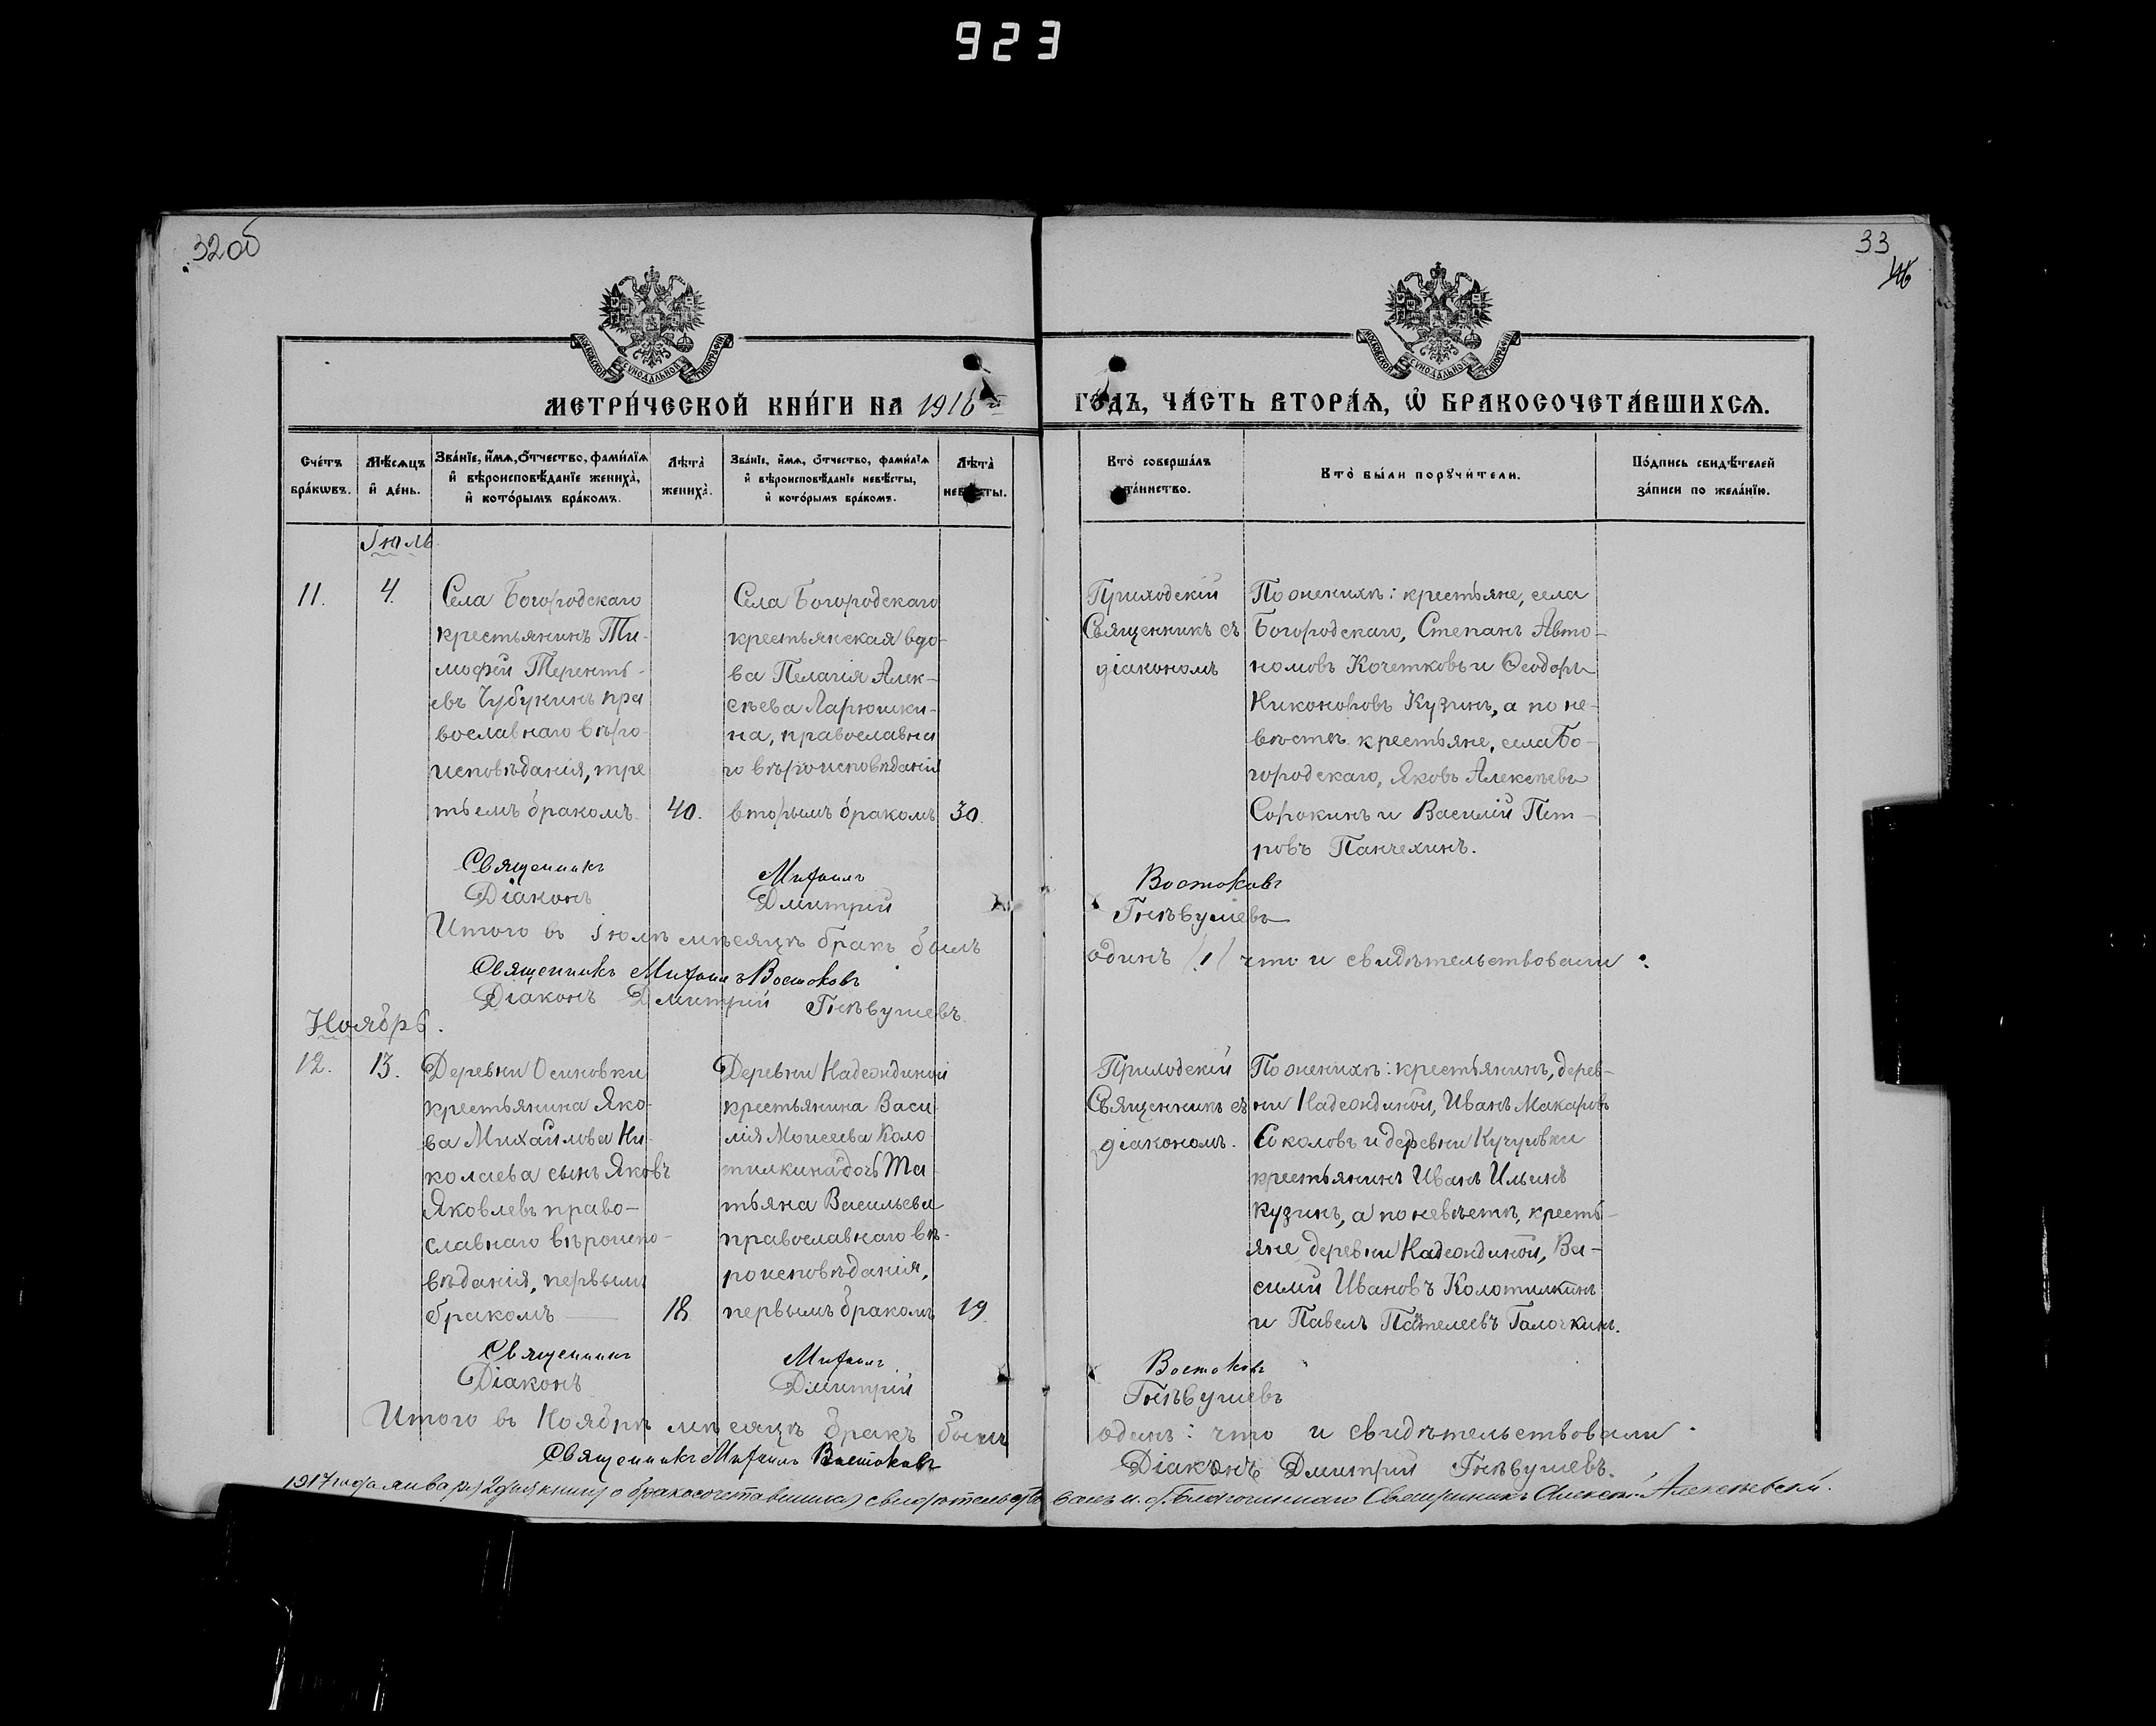 923
32 об
33
46
МОСКОВСКОЙ СѴНОДАЛЬНОЙ ТИПОГРАФІИ
МОСКОВСКОЙ СѴНОДАЛЬНОЙ ТИПОГРАФІИ
МЕТРИ́ЧЕСКОЙ КНИ́ГИ НА 1916й ГО́ДЪ, ЧА́СТЬ ВТОРА́Ѧ, Ѽ БРАКОСОЧЕТА́ВШИХСѦ.
Сче́тъ бра́кѡвъ.
Мѣ́сѧцъ и҆ де́нь.
Зва́нїе, и҆́мѧ, ѻ҆́тчество, фами́лїѧ
и҆ вѣроисповѣ́данїе жениха̀,
и҆ кото́рымъ бра́комъ.
Лѣта̀
жениха̀.
Зва́нїе, и҆́мѧ, ѻ҆́тчество, фами́лїѧ
и҆ вѣроисповѣ́данїе невѣ́сты,
и҆ кото́рымъ бра́комъ.
Лѣта̀
невѣ́сты.
Кто̀ соверша́лъ
та́инство.
Кто̀ бы́ли порꙋчи́тели.
По́дпись свидѣ́телей
за́писи по жела́нїю.
Іюль
11.
4.
Села Богородскаго
крестьянинъ Ти-
мофей Теренть-
евъ Чубукинъ пра
вославнаго вѣро-
исповѣданія, тре
тьемъ бракомъ.
40.
Села Богородскаго
крестьянская вдо-
ва Пелагія Алек-
сѣева Ларюшки-
на, православна
го вѣроисповѣданія
вторымъ бракомъ
30.
Приходскій
Священникъ съ
діакономъ
По женихѣ: крестьяне, села
Богородскаго, Степанъ Авто-
номовъ Кочетковъ и Ѳеодоръ
Никоноровъ Кузинъ, а по не-
вѣстѣ крестьяне, села Бо-
городскаго, Яковъ Алексѣевъ
Сорокинъ и Василій Пет-
ровъ Панчехинъ.
Священникъ Михаилъ Востоковъ
Діаконъ Дмитрій Гнѣвушевъ
Итого въ Іюлѣ мѣсяцѣ бракъ былъ одинъ /1/ что и свидѣтельствовали:
Священникъ Михаилъ Востоковъ
Діаконъ Дмитрій Гнѣвушевъ.
Ноябрь.
12.
13.
Деревни Осиновки
крестьянина Яко-
ва Михайлова Ни-
колаева сынъ Яковъ
Яковлевъ право-
славнаго вѣроиспо-
вѣданія, первымъ
бракомъ
18
Деревни Надеждиной
крестьянина Васи-
лія Моисеева Коло
тилкина дочь Та-
тьяна Васильева
православнаго вѣ-
роисповѣданія,
первымъ бракомъ
19
Приходскій
Священникъ съ
діакономъ.
По женихѣ: крестьянинъ, дерев-
ни Надеждиной, Иванъ Макаровъ
Соколовъ и деревни Кучуровки
крестьянинъ Иванъ Ильинъ
Кузинъ, а по невѣстѣ, кресть-
яне деревни Надеждиной, Ва-
силій Ивановъ Колотилкинъ
и Павелъ Пантелеевъ Галочкинъ.
Священникъ Михаилъ Востоковъ
Діаконъ Дмитрій Гнѣвушевъ
Итого въ Ноябрѣ мѣсяцѣ бракъ былъ одинъ: что и свидѣтельствовали
Священникъ Михаилъ Востоковъ
Діаконъ Дмитрій Гнѣвушевъ.
1917 года января 2 дня книгу о бракосочетавшихся свидѣтельствовалъ и. об. Благочиннаго Священникъ Алексѣй Алексѣевскій.